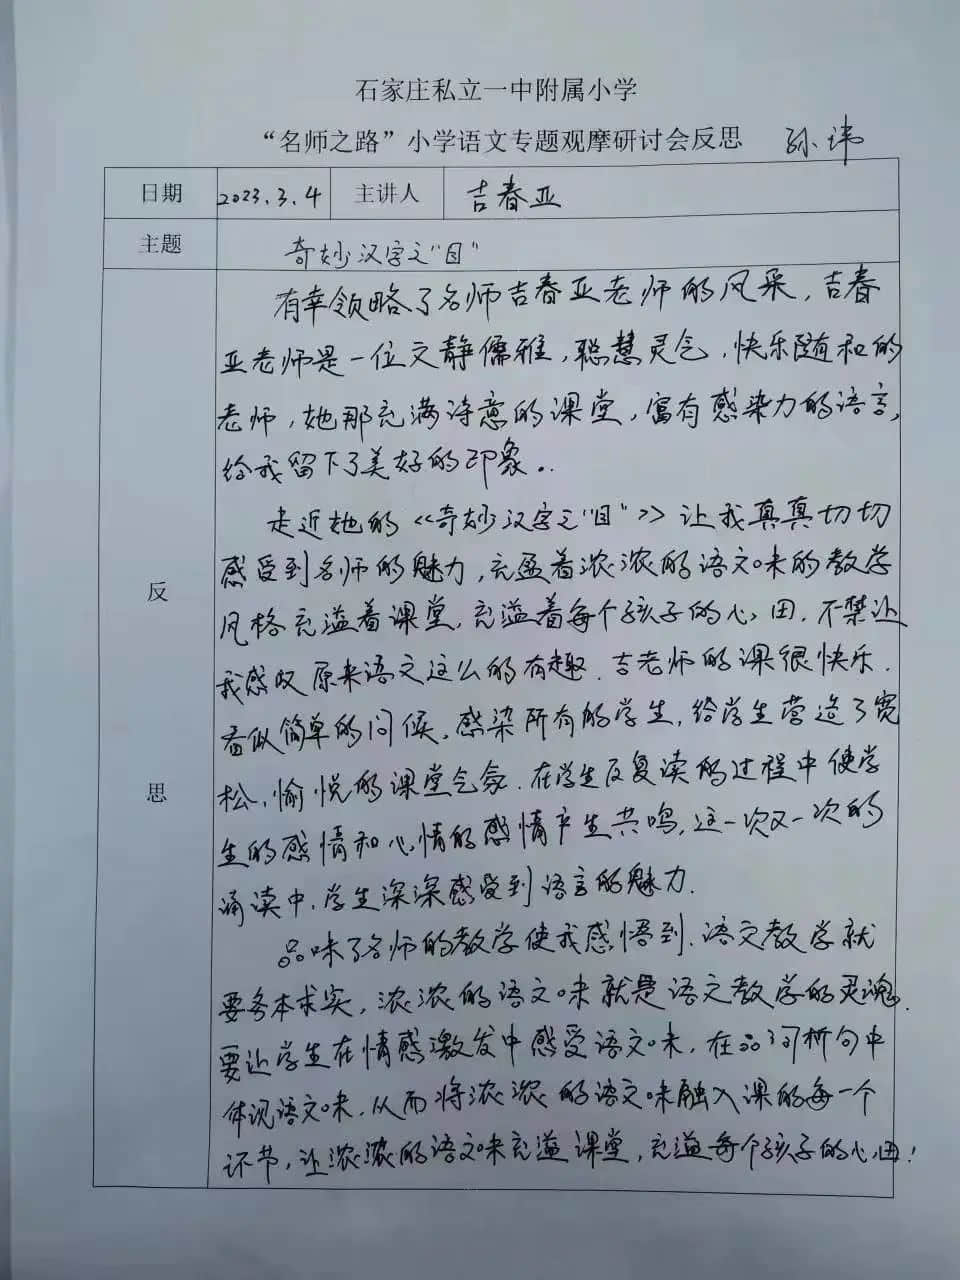 石家庄私立一中附属小学
“名师之路”小学语文专题观摩研讨会反思 孙玮
日期 2023.3.4 主讲人 吉春亚
主题 奇妙汉字之"目"
有幸领略了名师吉春亚老师的风采，吉春
亚老师是一位文静儒雅，聪慧灵气，快乐随和的
老师，她那充满诗意的课堂，富有感染力的语言，
给我留下了美好的印象。
走近她的《奇妙汉字之"目"》让我真真切切
感受到名师的魅力，充盈着浓浓的语文味的教学
风格充溢着课堂，充溢着每个孩子的心田，不禁让
我感叹原来语文这么的有趣.吉老师的课很快乐.
看似简单的问候，感染所有的学生，给学生营造了宽
松，愉悦的课堂气氛.在学生反复读的过程中使学
生的感情和心情的感情产生共鸣，这一次又一次的
诵读中，学生深深感受到语言的魅力.
品味了名师的教学使我感悟到.语文教学就
要务本求实，浓浓的语文味就是语文教学的灵魂.
要让学生在情感激发中感受语文味，在品词析句中
体现语文味，从而将浓浓的语文味融入课的每一个
环节，让浓浓的语文味充溢课堂，充溢每个孩子的心田！
反
思